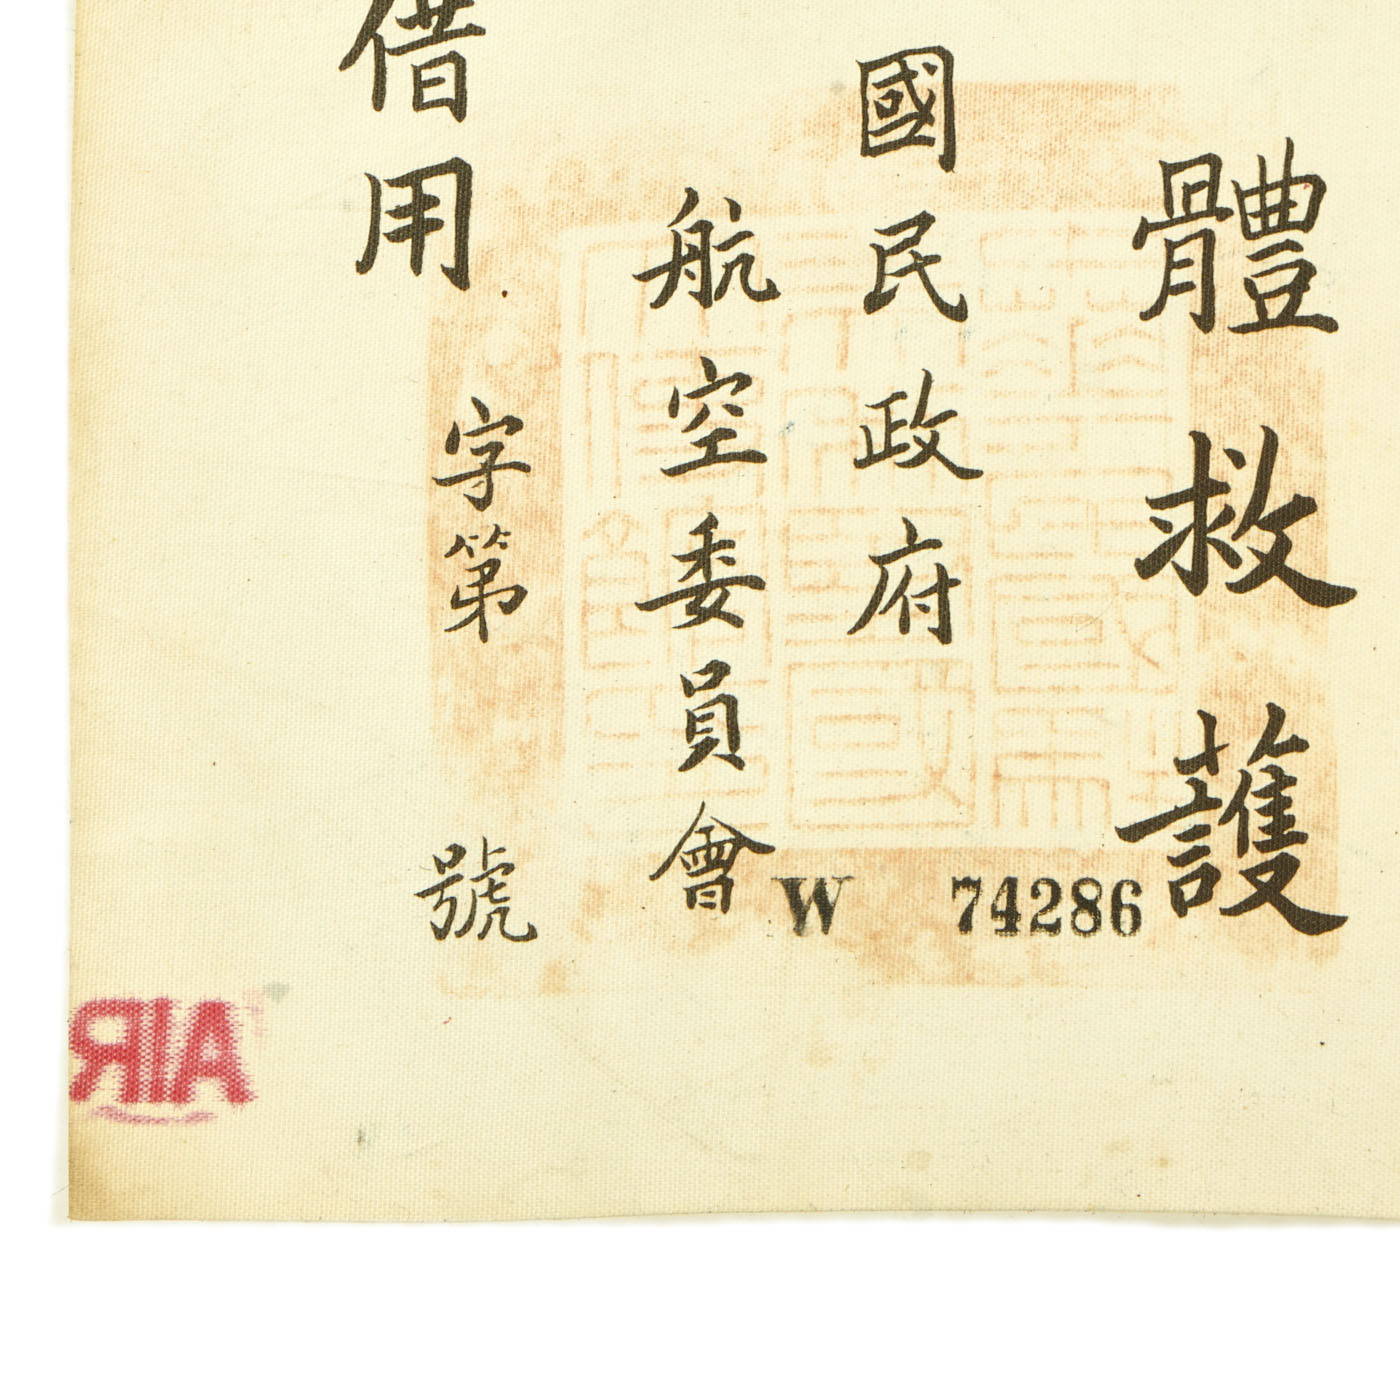 體救護
國民政府
航空委員會
字第 號
借用
W 74286
AIR